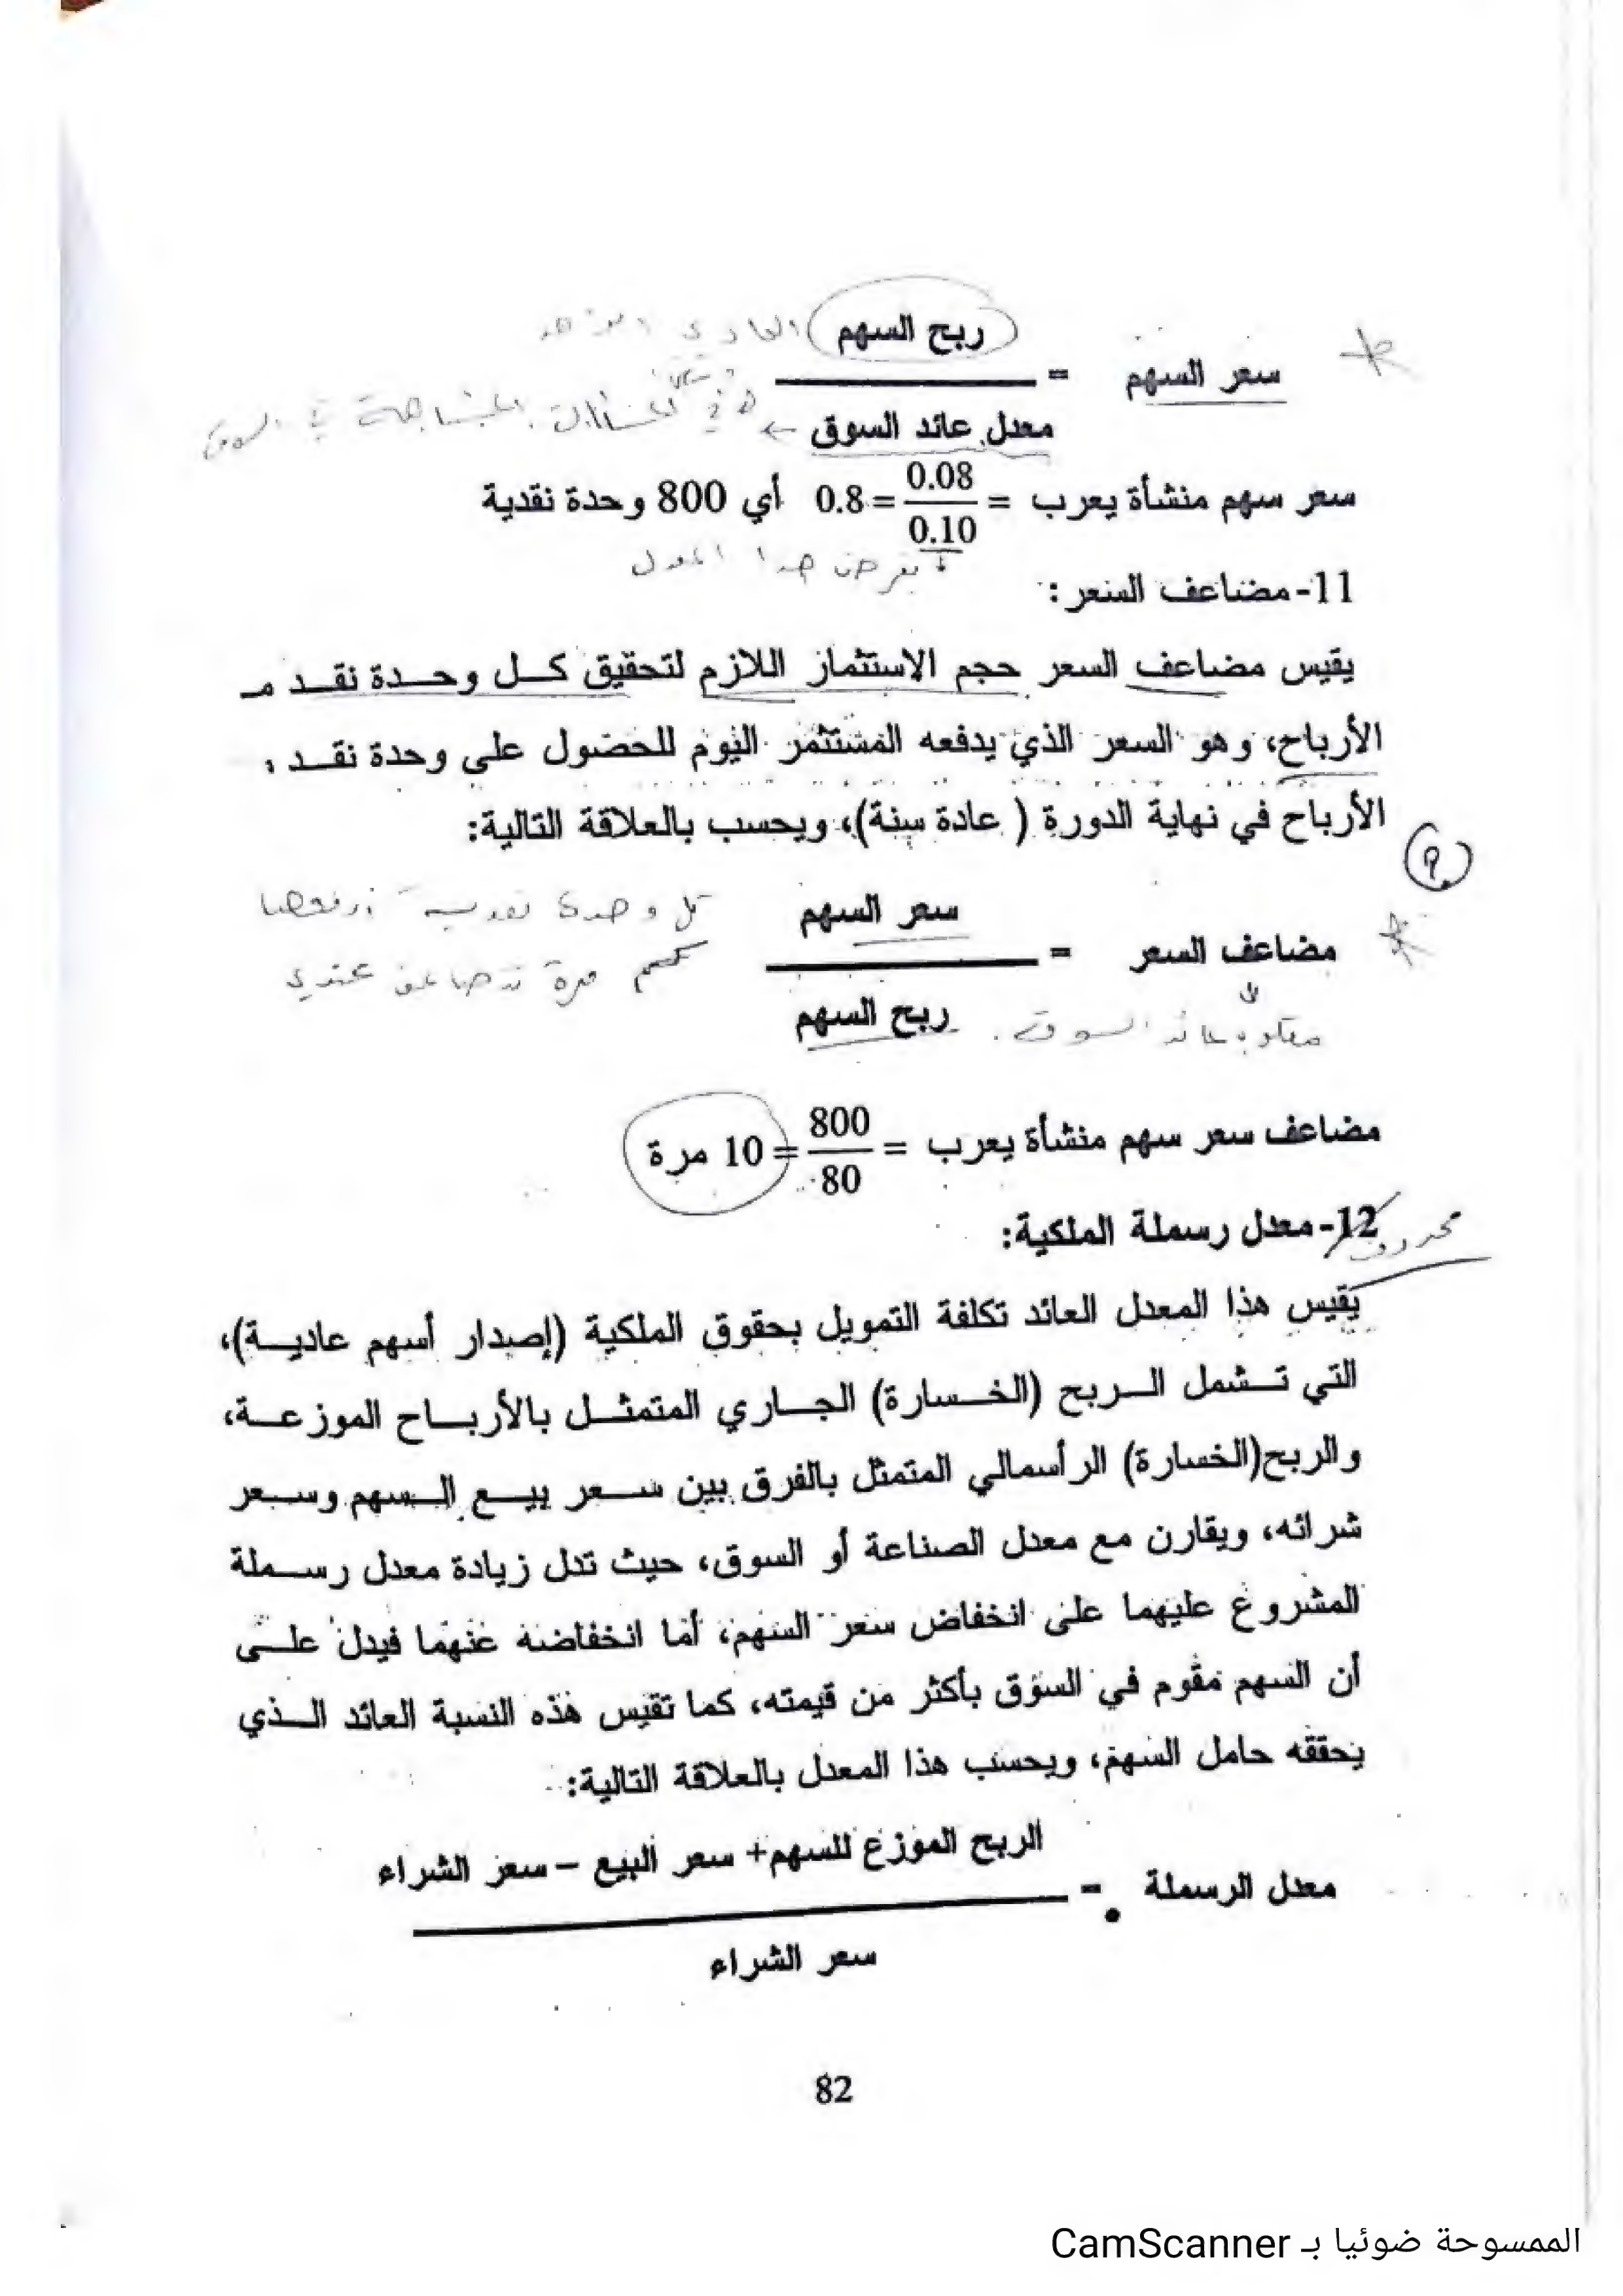 ربح السهم
سعر السهم =
معدل عائد السوق ←
سعر سهم منشأة يعرب = 0.08 / 0.10 = 0.8 أي 800 وحدة نقدية
نفرض هذا المعدل
11-مضاعف السعر:
يقيس مضاعف السعر حجم الاستثمار اللازم لتحقيق كل وحدة نقد مـ
الأرباح، وهو السعر الذي يدفعه المستثمر اليوم للحصول على وحدة نقد
الأرباح في نهاية الدورة ( عادة سنة)، ويحسب بالعلاقة التالية:
9
كل وحدة نقدية
سعر السهم
مضاعف السعر =
كم مرة تتضاعف عندي
ربح السهم
مقلوب عائد السوق.
مضاعف سعر سهم منشأة يعرب = 800 / 80 = 10 مرة
12-معدل رسملة الملكية:
محذوف
يقيس هذا المعدل العائد تكلفة التمويل بحقوق الملكية (إصدار أسهم عادية)،
التي تشمل الربح (الخسارة) الجاري المتمثل بالأرباح الموزعة،
والربح(الخسارة) الرأسمالي المتمثل بالفرق بين سعر بيع السهم وسعر
شرائه، ويقارن مع معدل الصناعة أو السوق، حيث تدل زيادة معدل رسملة
المشروع عليهما على انخفاض سعر السهم، أما انخفاضه عنهما فيدل على
أن السهم مقوم في السوق بأكثر من قيمته، كما تقيس هذه النسبة العائد الذي
يحققه حامل السهم، ويحسب هذا المعدل بالعلاقة التالية:
الربح الموزع للسهم+ سعر البيع – سعر الشراء
معدل الرسملة =
سعر الشراء
82
الممسوحة ضوئيا بـ CamScanner